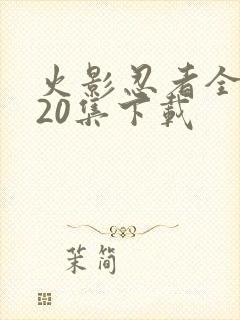 火影忍者全
20集下載
茉简